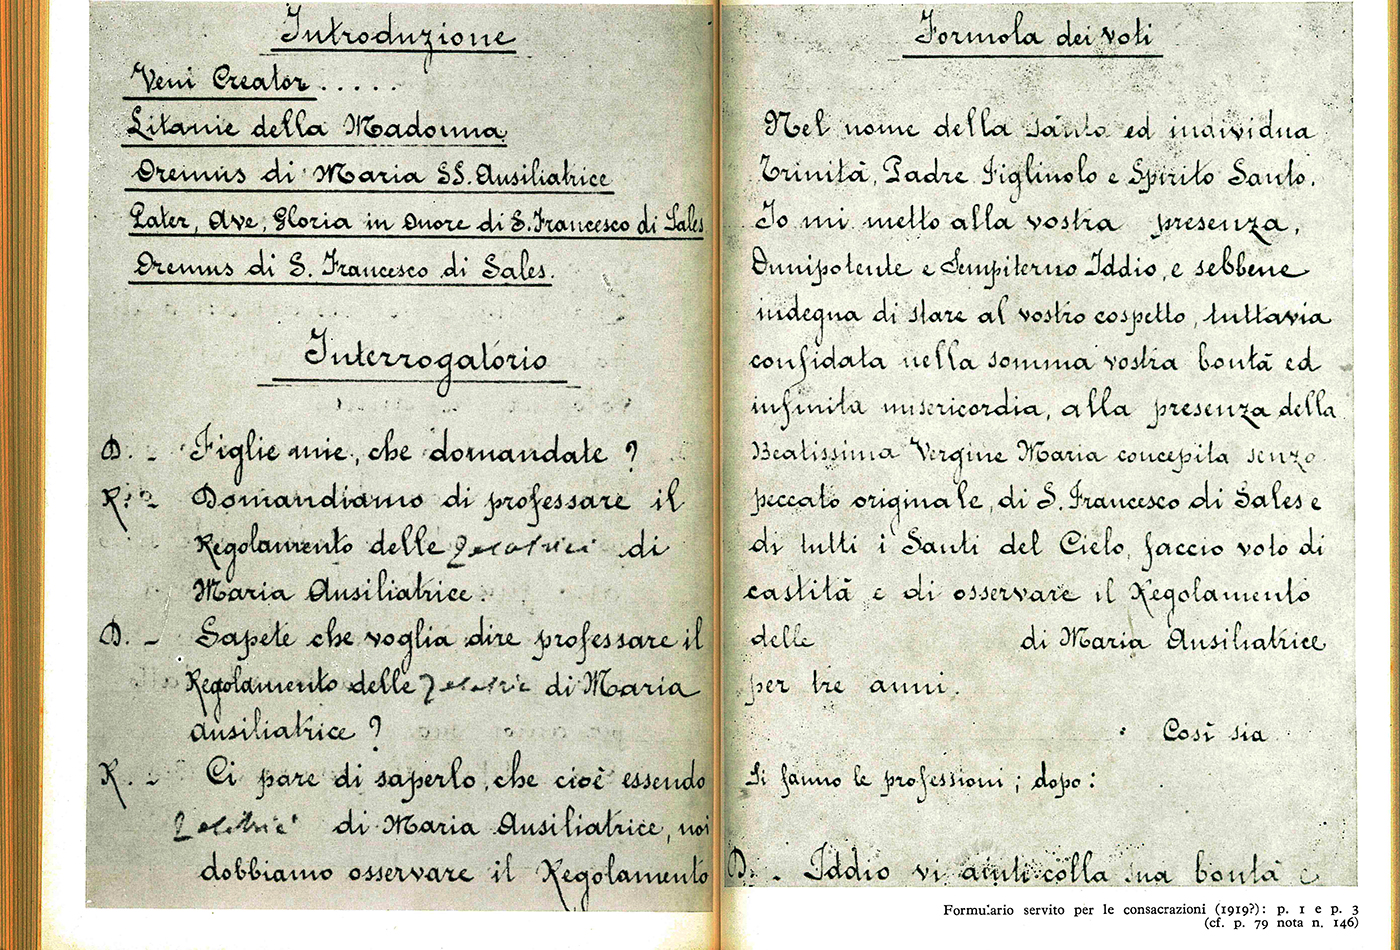 Introduzione
Veni Creator.....
Litanie della Madonna
Oremus di Maria SS. Ausiliatrice
Pater, Ave, Gloria in Onore di S. Francesco di Sales
Oremus di S. Francesco di Sales.
Interrogatorio
D. - Figlie mie, che domandate ?
R. - Domandiamo di professare il
Regolamento delle Zelatrici di
Maria Ausiliatrice.
D. - Sapete che voglia dire professare il
Regolamento delle Zelatrici di Maria
Ausiliatrice ?
R. - Ci pare di saperlo, che cioè essendo
Zelatrici di Maria Ausiliatrice, noi
dobbiamo osservare il Regolamento
Formola dei voti
Nel nome della santa ed individua
Trinità, Padre Figliuolo e Spirito Santo.
Io mi metto alla vostra presenza,
Onnipotente e Sempiterno Iddio, e sebbene
indegna di stare al vostro cospetto, tuttavia
confidata nella somma vostra bontà ed
infinita misericordia, alla presenza della
Beatissima Vergine Maria concepita senza
peccato originale, di S. Francesco di Sales e
di tutti i Santi del Cielo, faccio voto di
castità e di osservare il Regolamento
delle di Maria Ausiliatrice
per tre anni.
Così sia
Si fanno le professioni ; dopo :
D. - Iddio vi aiuti colla sua bontà e
Formulario servito per le consacrazioni (1919?): p. 1 e p. 3
(cf. p. 79 nota n. 146)